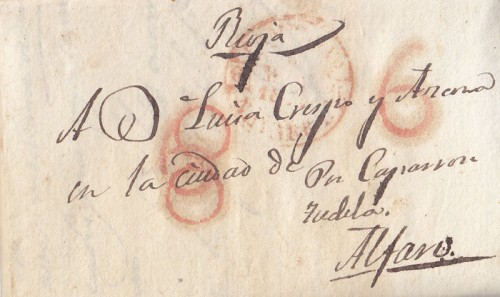 Rioja
A Dª Luisa Crespo y Azcona
en la ciudad de
Pr Caparron
Tudela.
Alfaro.
8
8
6